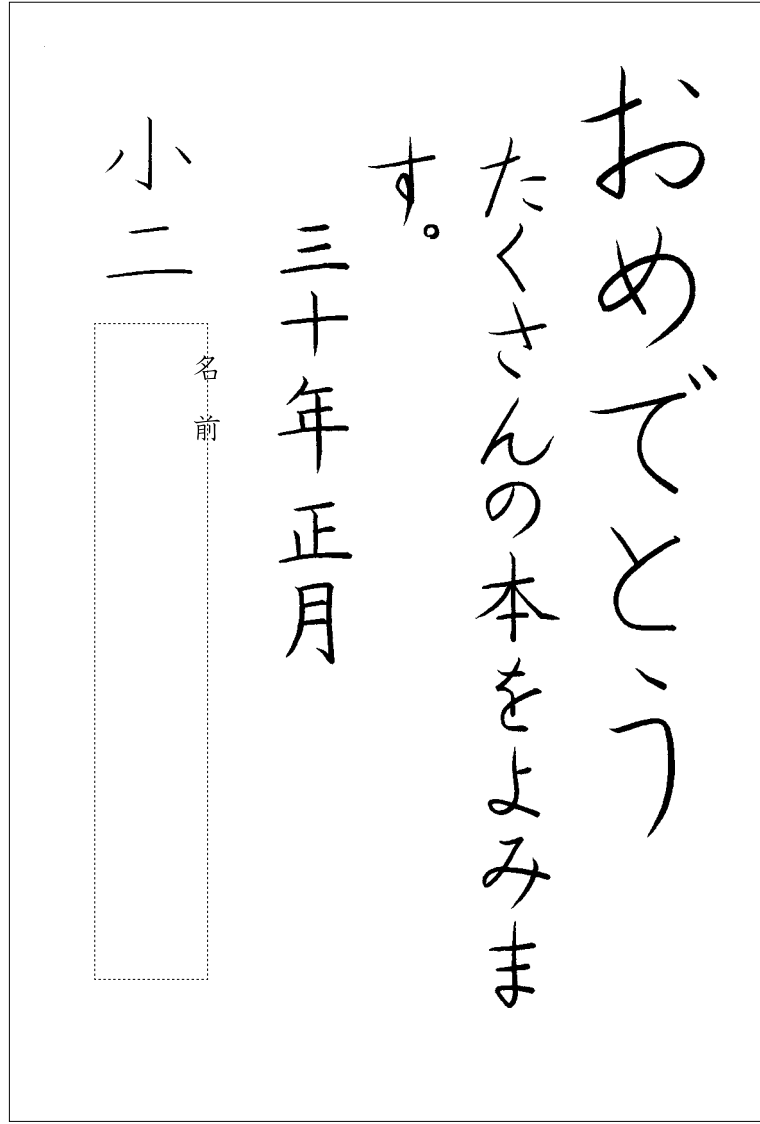 おめでとう
たくさんの本をよみま
す。
三十年正月
小二
名前